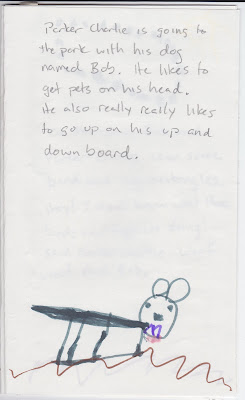 Parker Charlie is going to
the park with his dog
named Bob. He likes to
get pets on his head.
He also really really likes
to go up on his up and
down board.